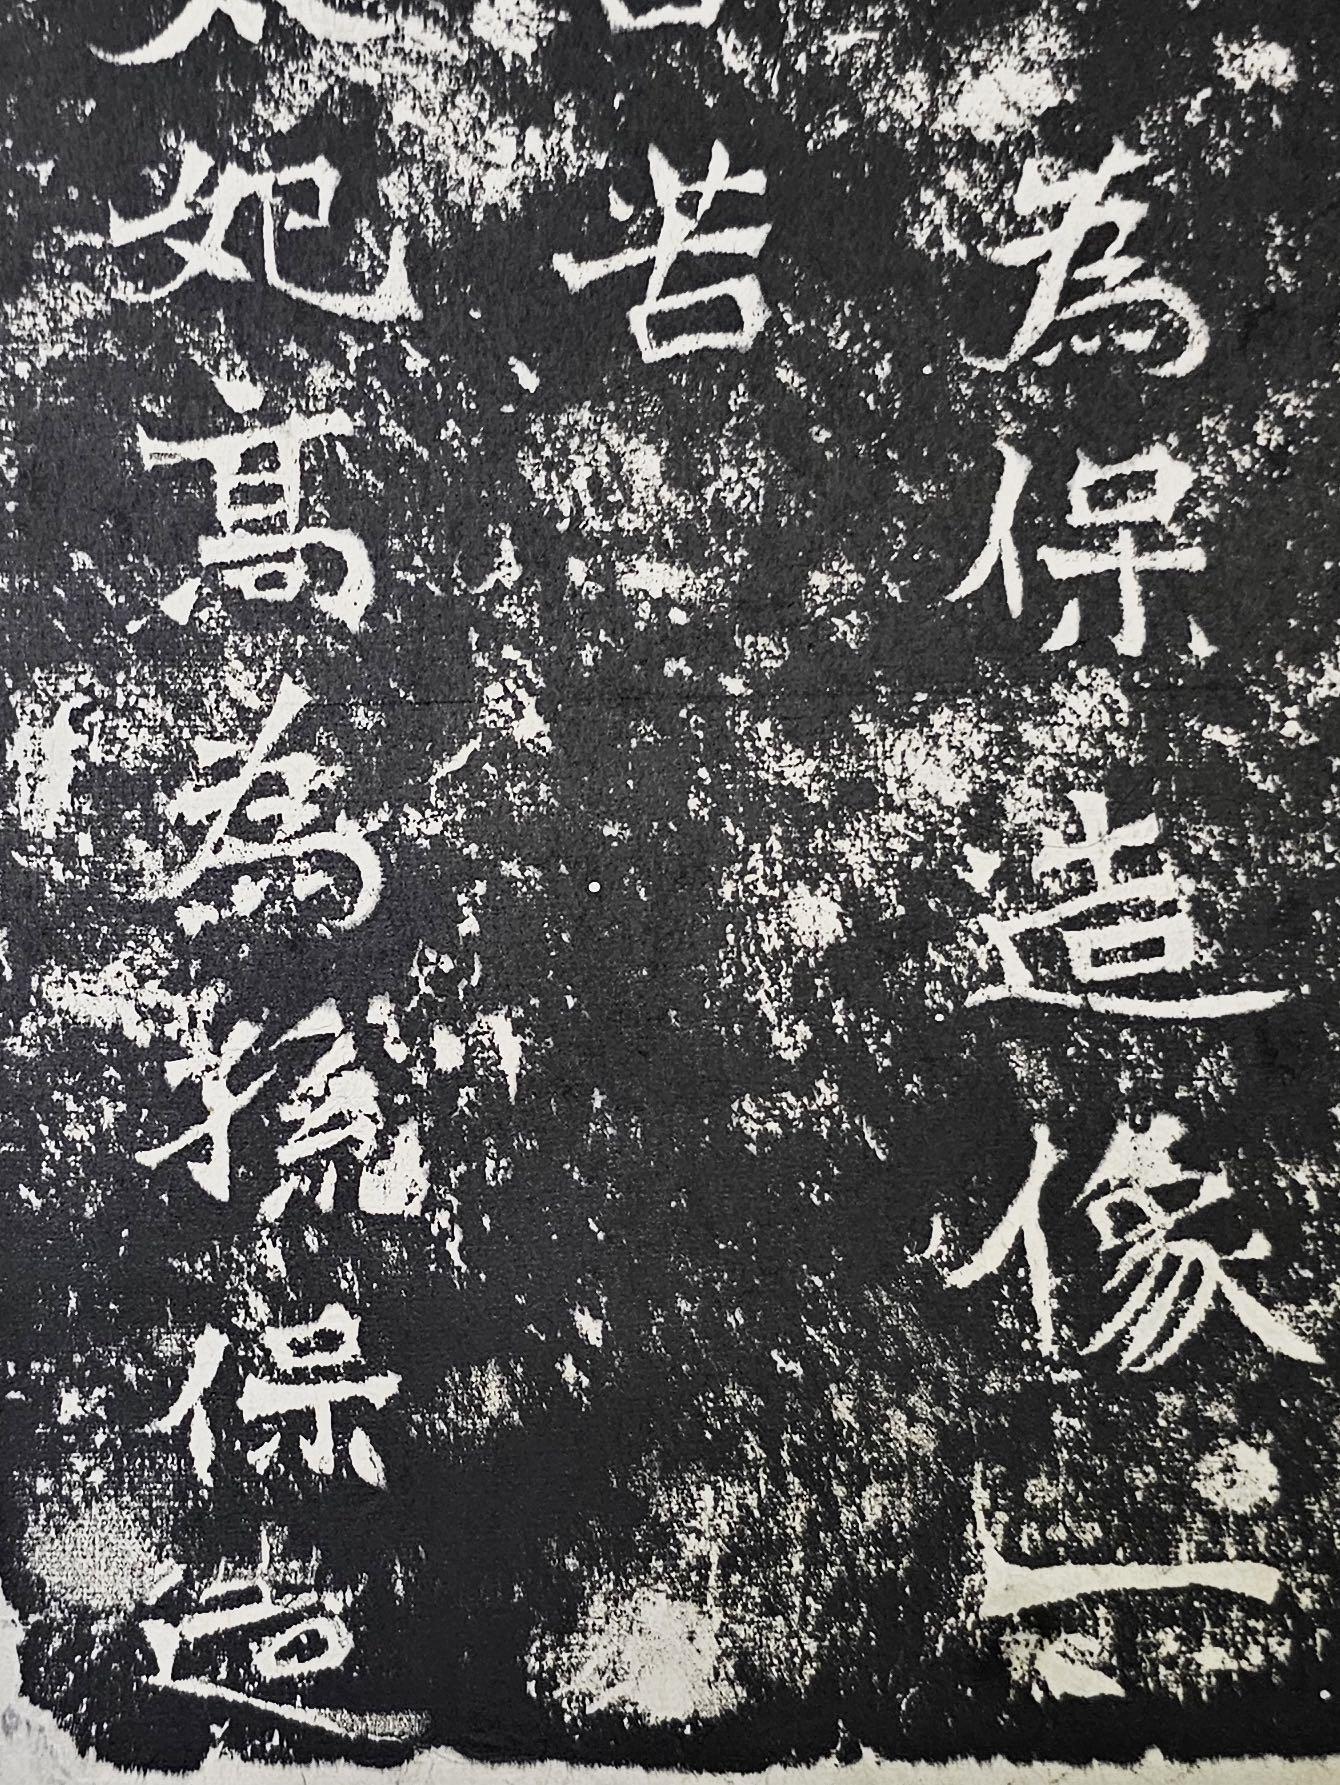 為保造像一
苦
妃高為孫保造